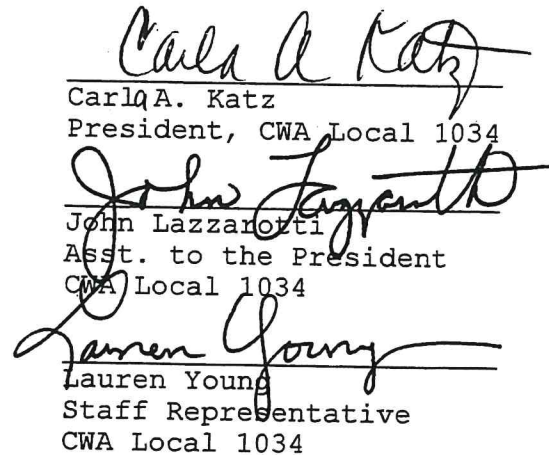 Carla A Katz
Carla A. Katz
President, CWA Local 1034
John Lazzarotti
John Lazzarotti
Asst. to the President
CWA Local 1034
Lauren Young
Lauren Young
Staff Representative
CWA Local 1034